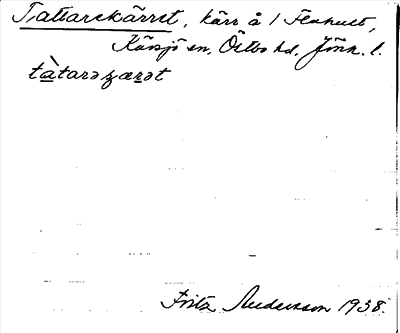 Tattarekärret, kärr å 1 Flahult,
Kävsjö sn, Östbo hd. Jönk. l.
tàtarəʒærət
Fritz Andersson 1938.